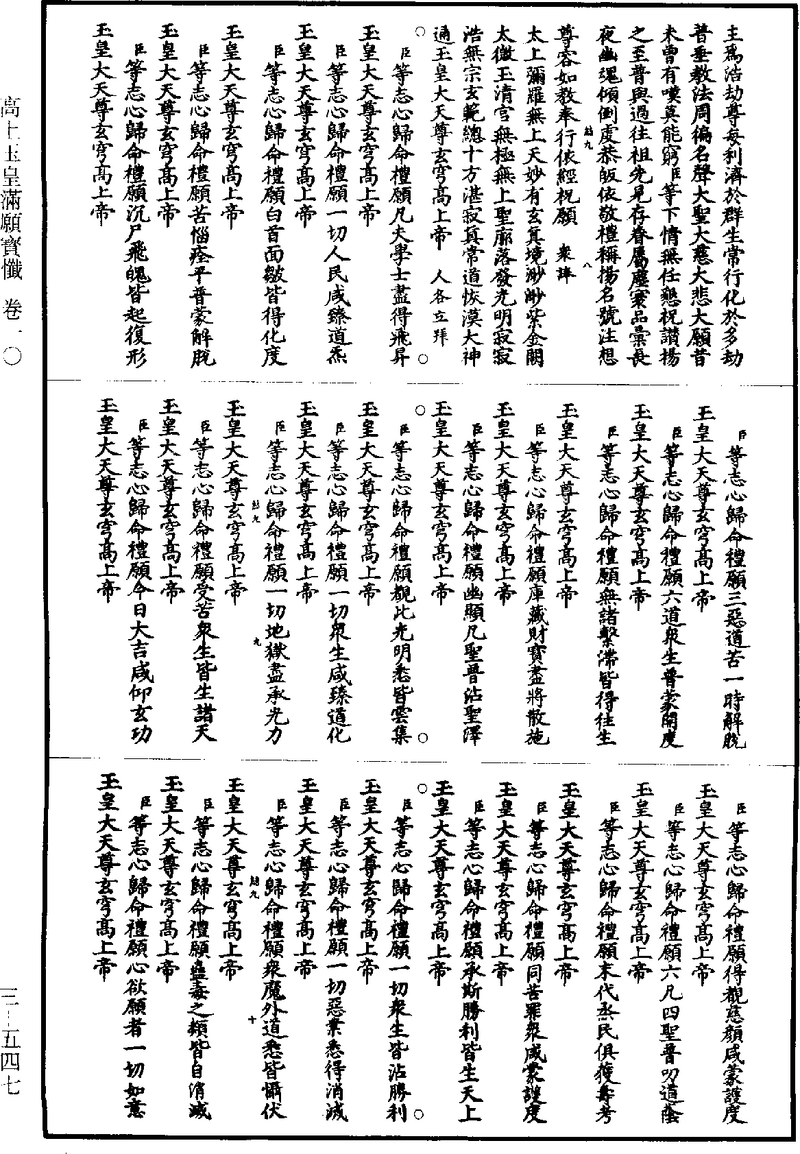 主為浩劫尊每利濟於群生常行化於多劫
普垂教法周徧名聲大聖大慈大悲大願昔
未曾有嘆莫能窮臣等下情無任懇祝讚揚
之至普與過往祖先見存眷屬塵寰品彙長
夜幽魂傾倒虔恭皈依敬禮稱揚名號注想
尊容如教奉行依經祝願 眾誦
太上彌羅無上天妙有玄真境渺渺紫金闕
太微玉清宮無極無上聖廓落發光明寂寂
浩無宗玄範總十方湛寂真常道恢漠大神
通玉皇大天尊玄穹高上帝 人各立拜
臣等志心歸命禮願凡夫學士盡得飛昇
玉皇大天尊玄穹高上帝
臣等志心歸命禮願一切人民咸臻道炁
玉皇大天尊玄穹高上帝
臣等志心歸命禮願白首面皺皆得化度
玉皇大天尊玄穹高上帝
臣等志心歸命禮願苦惱痊平普蒙解脫
玉皇大天尊玄穹高上帝
臣等志心歸命禮願沉尸飛魄皆起復形
玉皇大天尊玄穹高上帝
臣等志心歸命禮願三惡道苦一時解脫
玉皇大天尊玄穹高上帝
臣等志心歸命禮願六道眾生普蒙開度
玉皇大天尊玄穹高上帝
臣等志心歸命禮願無諸繫滯皆得往生
玉皇大天尊玄穹高上帝
臣等志心歸命禮願庫藏財寶盡將散施
玉皇大天尊玄穹高上帝
臣等志心歸命禮願幽顯凡聖普沾聖澤
玉皇大天尊玄穹高上帝
臣等志心歸命禮願覩此光明悉皆雲集
玉皇大天尊玄穹高上帝
臣等志心歸命禮願一切眾生咸臻道化
玉皇大天尊玄穹高上帝
臣等志心歸命禮願一切地獄盡承光力
玉皇大天尊玄穹高上帝
臣等志心歸命禮願受苦眾生皆生諸天
玉皇大天尊玄穹高上帝
臣等志心歸命禮願今日大吉咸仰玄功
玉皇大天尊玄穹高上帝
臣等志心歸命禮願得覩慈顏咸蒙護度
玉皇大天尊玄穹高上帝
臣等志心歸命禮願六凡四聖普叨道蔭
玉皇大天尊玄穹高上帝
臣等志心歸命禮願末代烝民俱獲壽考
玉皇大天尊玄穹高上帝
臣等志心歸命禮願同苦罪眾咸蒙護度
玉皇大天尊玄穹高上帝
臣等志心歸命禮願承斯勝利皆生天上
玉皇大天尊玄穹高上帝
臣等志心歸命禮願一切眾生皆沾勝利
玉皇大天尊玄穹高上帝
臣等志心歸命禮願一切惡業悉得消滅
玉皇大天尊玄穹高上帝
臣等志心歸命禮願眾魔外道悉皆懾伏
玉皇大天尊玄穹高上帝
臣等志心歸命禮願蠱毒之類皆自消滅
玉皇大天尊玄穹高上帝
臣等志心歸命禮願心欲願者一切如意
玉皇大天尊玄穹高上帝
高上玉皇滿願寶懺 卷一〇
三－五四七